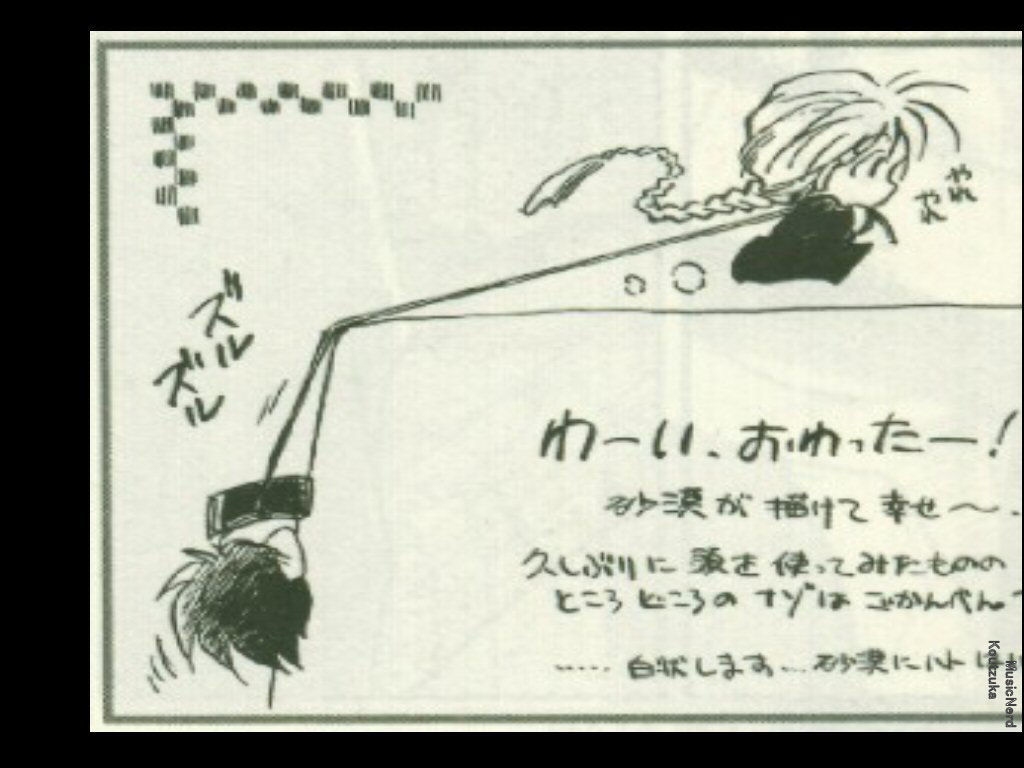 やれ
やれ
ズル
ズル
わーい、おわったー!
砂漠が描けて幸せ〜.
久しぶりに頭を使ってみたものの
ところどころのナゾはごかんべん
……白状します…砂漠にハト
MusicNerd
Koutzuka